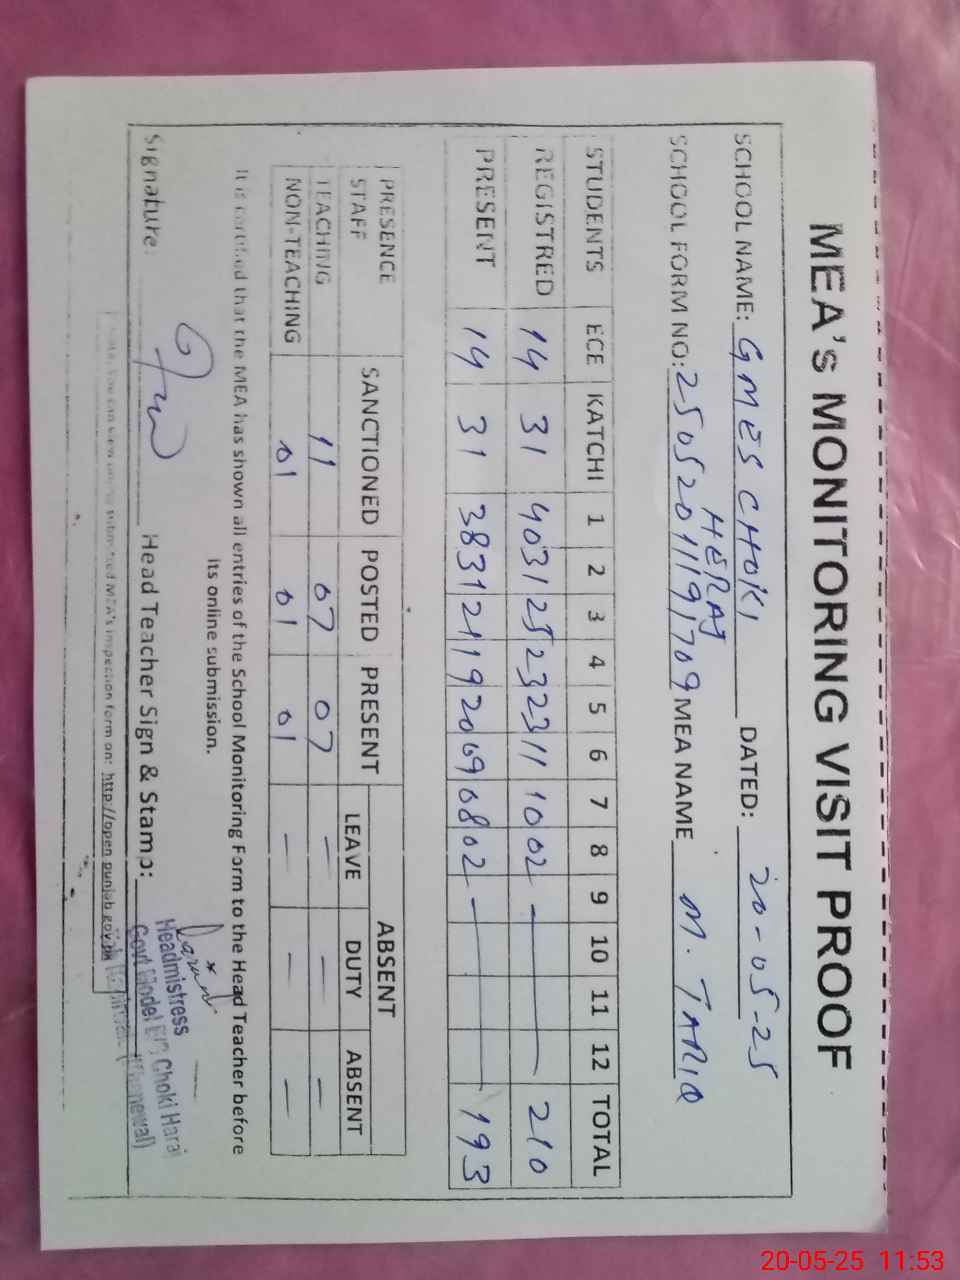 MEA's MONITORING VISIT PROOF
SCHOOL NAME: GMES CHOKI HERAJ DATED: 20-05-25
SCHOOL FORM NO: 25052011191709 MEA NAME M. TARIQ
STUDENTS ECE KATCHI 1 2 3 4 5 6 7 8 9 10 11 12 TOTAL
REGISTRED 14 31 40 31 25 23 23 11 10 02 — 210
PRESENT 14 31 38 31 21 19 20 09 08 02 — 193
PRESENCE STAFF SANCTIONED POSTED PRESENT ABSENT
LEAVE DUTY ABSENT
TEACHING 11 07 07 — — —
NON-TEACHING 01 01 01 — — —
It is certified that the MEA has shown all entries of the School Monitoring Form to the Head Teacher before
its online submission.
Signature: Head Teacher Sign & Stamp:
Headmistress
Govt Model E/S Choki Harai
(Khanewal)
Note: You can view online submitted MEA's inspection form on: http://open.punjab.gov.pk
20-05-25 11:53